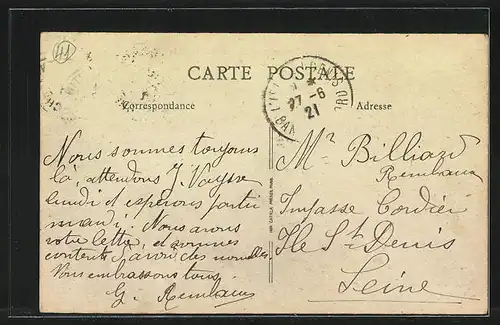 41
CARTE POSTALE
Correspondance
Adresse
27-6
21
Nous sommes toujours
là, attendons J. Vaysse
lundi et espérons partir
mardi. Nous avons
votre lettre, et sommes
contents d'avoir des nouvelles
Vous embrassons tous.
G. Rembaux
Mr Billiard
Rembaux
Impasse Cordier
Ile St Denis
Seine